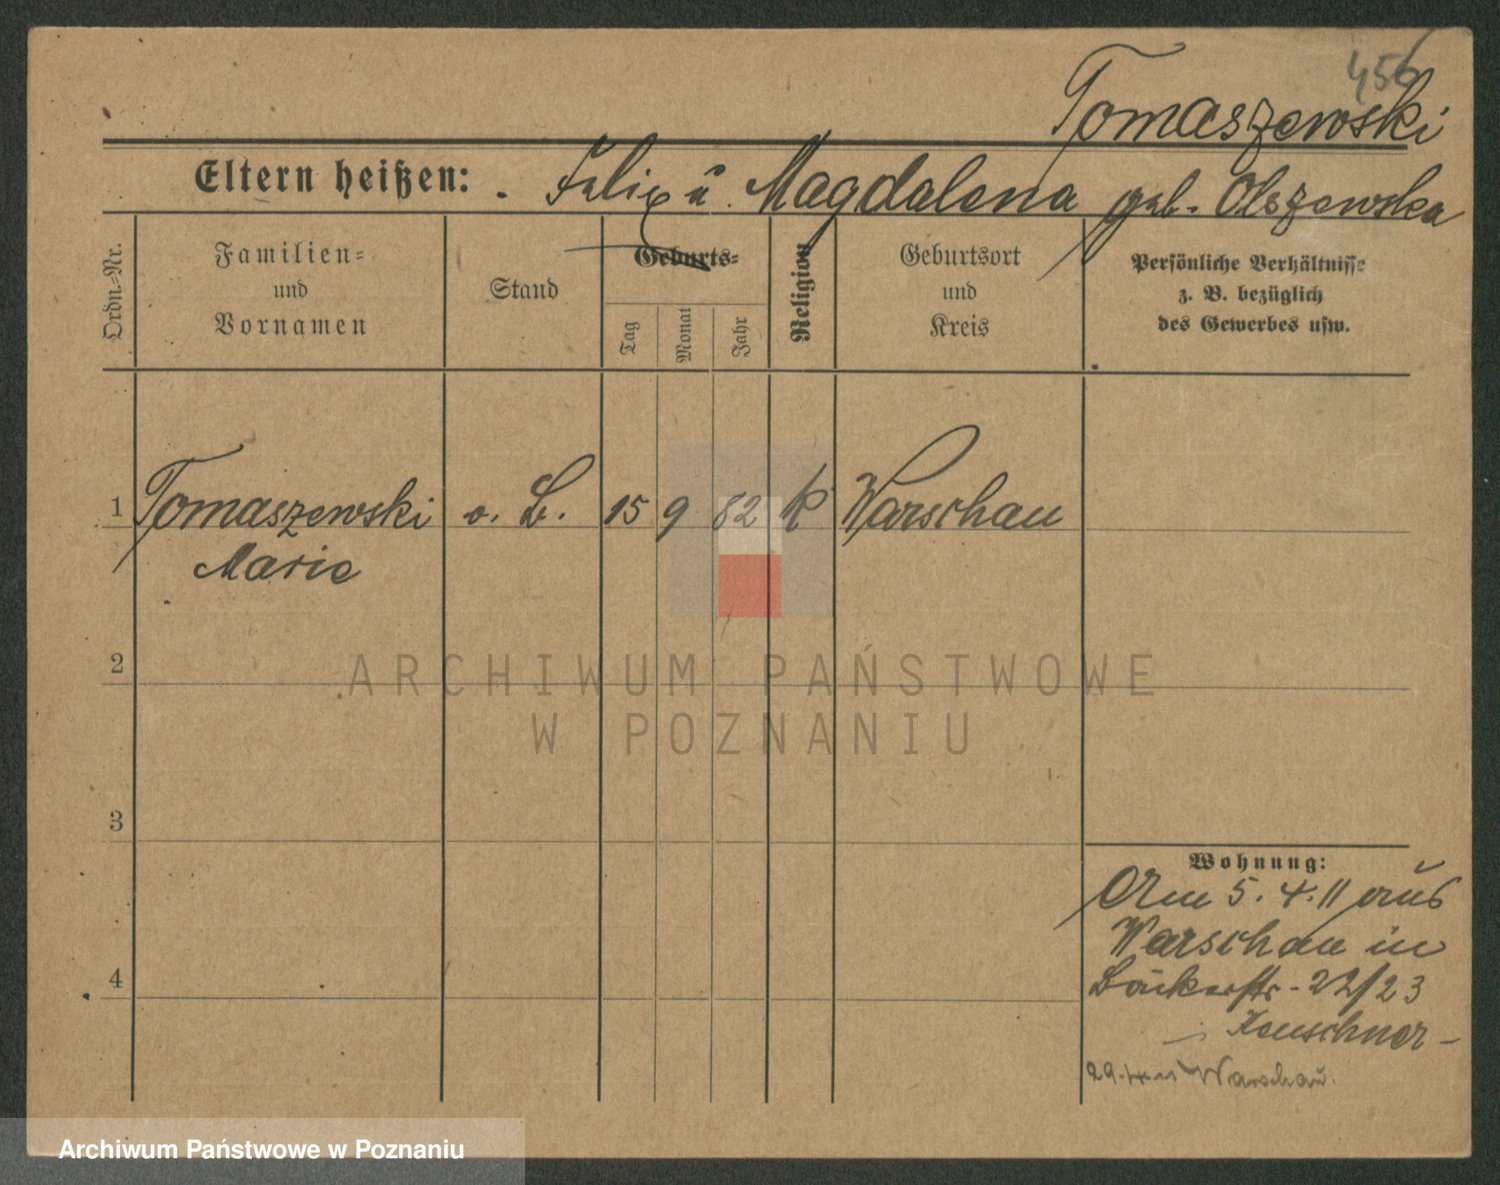 456
Tomaszewski
Eltern heißen: Felix u. Magdalena geb. Olszewska
Ordn.-Nr.
Familien-
und
Vornamen
Stand
Geburts-
Tag
Monat
Jahr
Religion
Geburtsort
und
Kreis
Persönliche Verhältnisse
z. B. bezüglich
des Gewerbes usw.
1 Tomaszewski o. B. 15 9 82 k Warschau
Marie
2
ARCHIWUM PAŃSTWOWE
W POZNANIU
3
Wohnung:
Am 5. 4. 11 aus
Warschau in
4
Bäckerstr. 22/23
29. Warschau.
Archiwum Państwowe w Poznaniu